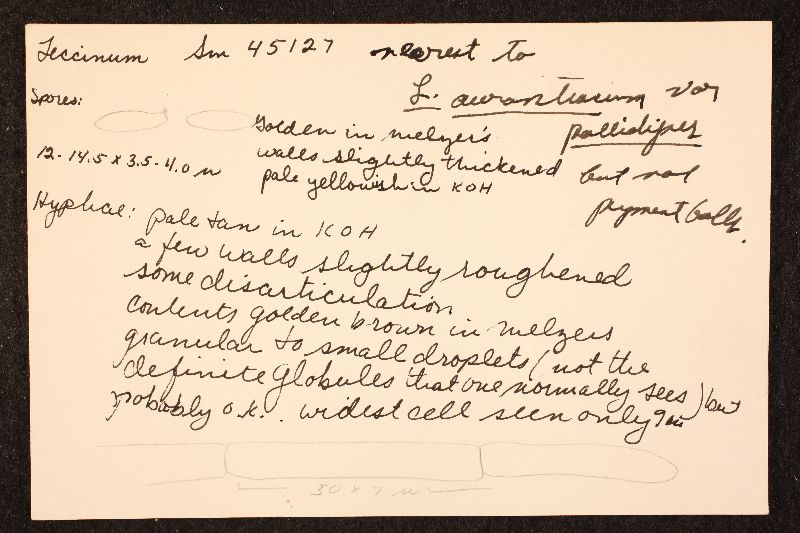 Leccinum Sm 45127 nearest to
L. aurantiacum var
pallidipes
but not
pigment balls.
Spores:
12-14.5 x 3.5-4.0 u
Golden in melzer's
walls slightly thickened
pale yellowish in KOH
Hyphae: pale tan in KOH
a few walls slightly roughened
some disarticulation
contents golden brown in melzers
granular to small droplets (not the
definite globules that one normally sees) but
probably o.k. . widest cell seen only 9 u
30 x 7 u